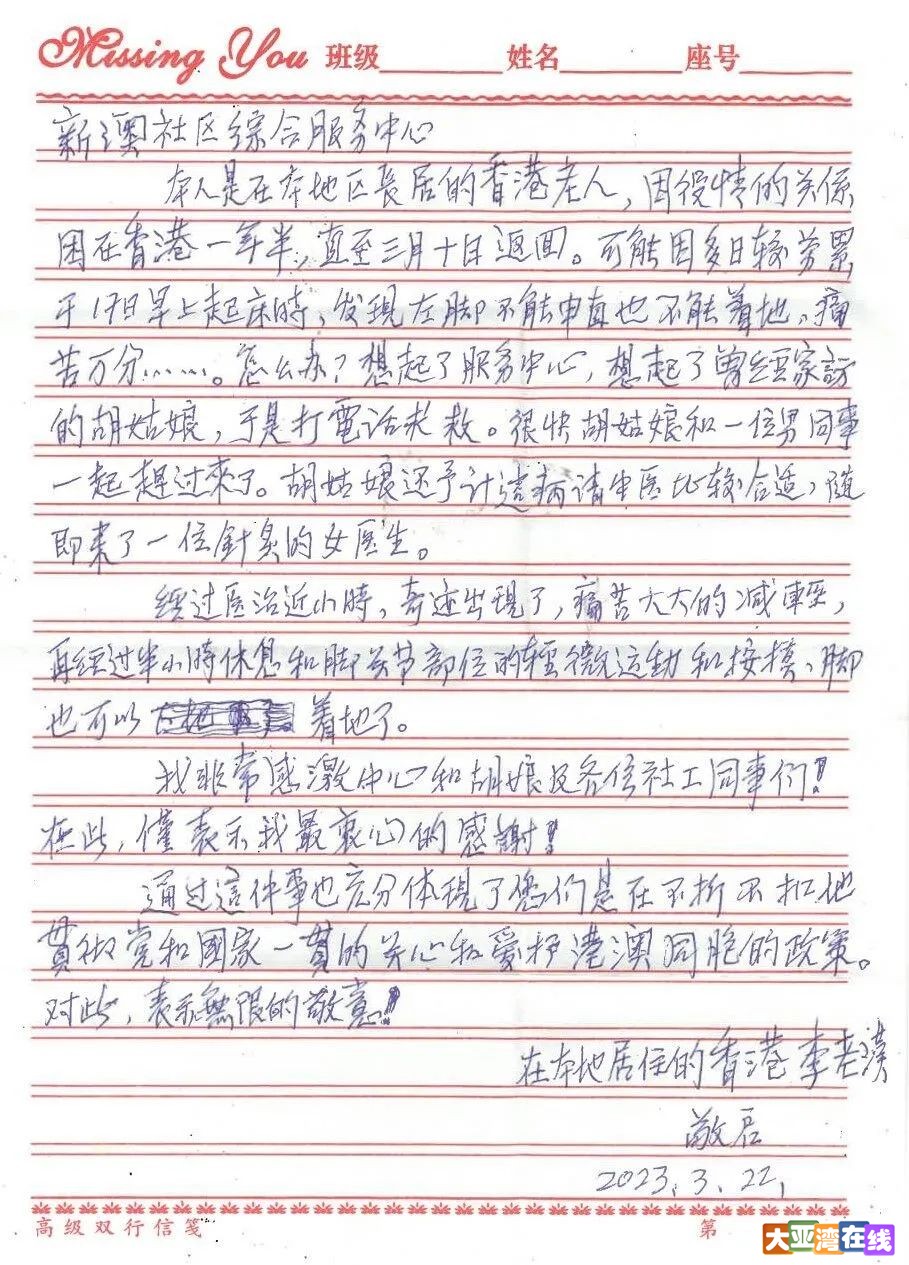 Missing You 班级 姓名 座号
新澳社区綜合服务中心
本人是在本地区長居的香港老人，因役情的关係
困在香港一年半，直至三月十日返回。可能因多日较劳累，
于17日早上起床時、发現左脚不能申直也不能着地。痛
苦万分……。怎么办？想起了服务中心，想起了曾经家訪
的胡姑娘，于是打電话求救。很快胡姑娘和一位男同事
一起趕过來了。胡姑娘还予计這病请中医比较合适，随
即来了一位針灸的女医生。
經过医治近小時，奇迹出現了，痛苦大大的减輕，
再經过半小時休息和脚关节部位的輕微运动和按摸、脚
也可以着地了。
我非常感激中心和胡娘及各位社工同事们！
在此，僅表示我最衷心的感謝！
通过這件事也充分体現了您们是在不折不扣地
貫彻党和國家一贯的关心和爱护港澳同胞的政策。
对此，表示無限的敬意！
在本地居住的香港李老漢
敬启
2023.3.22,
高级双行信笺 第
大亚湾在线